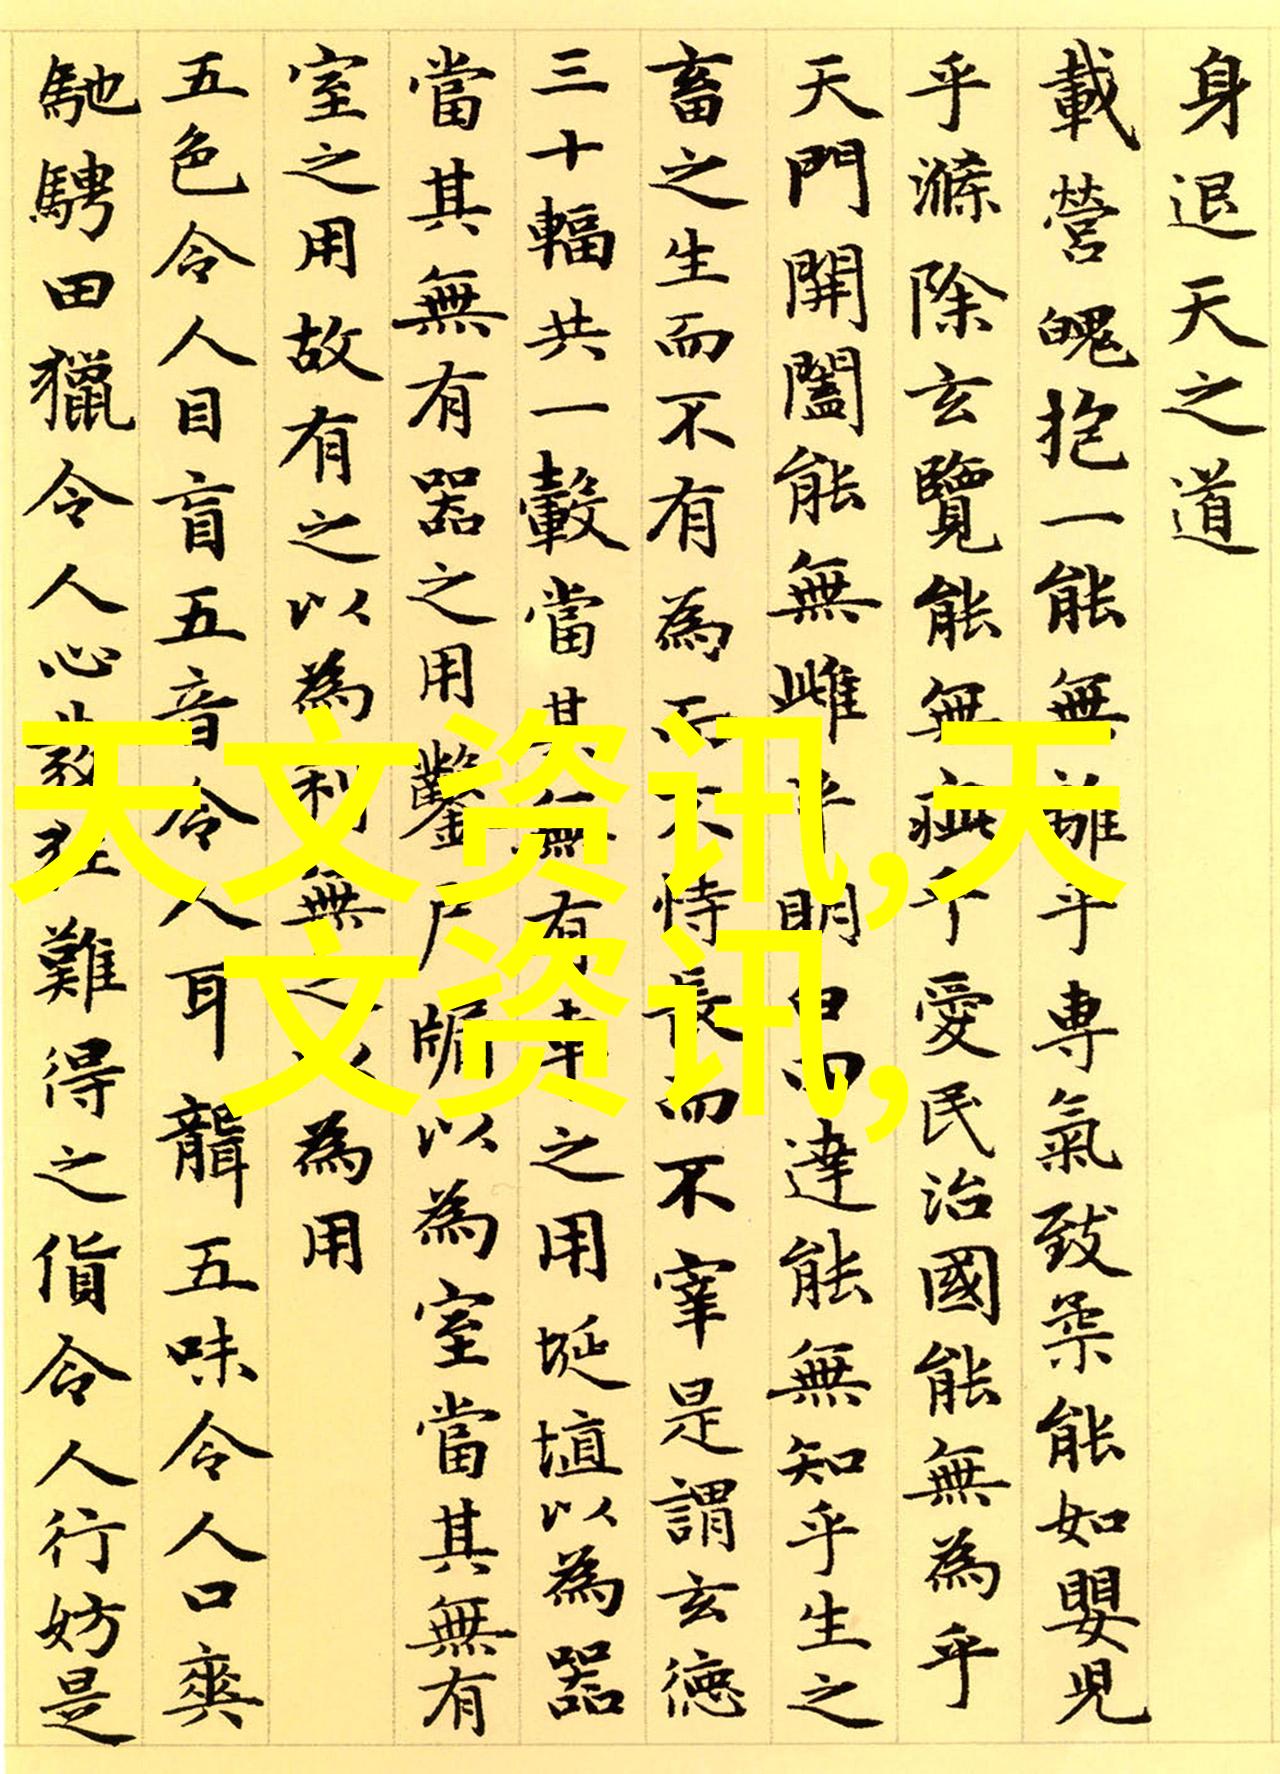 身退天之道
載營魄抱一能無離乎専氣致柔能如嬰児
乎滌除玄覽能無疵乎愛民治國能無為乎
天門開闔能無雌乎明白四達能無知乎生之
畜之生而不有為而不恃長而不宰是謂玄德
三十輻共一轂當其無有車之用埏埴以為器
當其無有器之用鑿戶牖以為室當其無有
室之用故有之以為利無之以為用
五色令人目盲五音令人耳聾五味令人口爽
馳騁田獵令人心發狂難得之貨令人行妨是
天文资讯,天
文资讯,